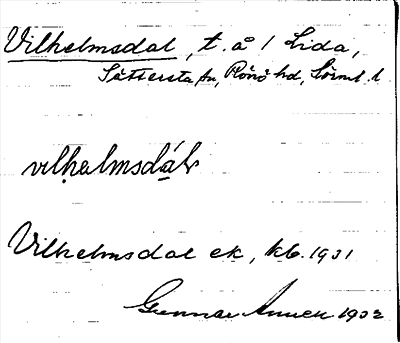 Vilhelmsdal, t. å / Lida,
Sättersta sn, Rönö hd, Sörml. l.
vilhelmsdál
Vilhelmsdal ek, kb. 1931
Gunnar 1932